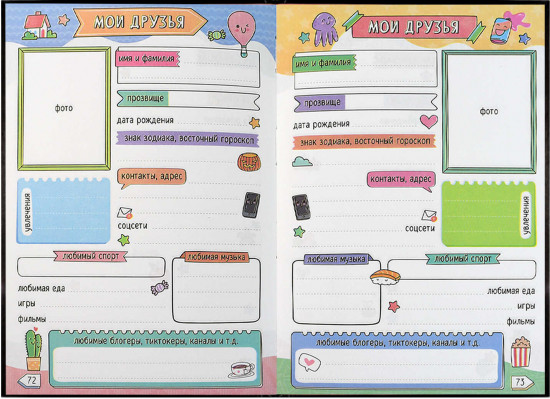 МОИ ДРУЗЬЯ
имя и фамилия
фото
прозвище
дата рождения
знак зодиака, восточный гороскоп
контакты, адрес
увлечения
соцсети
любимый спорт
любимая музыка
любимая еда
игры
фильмы
любимые блогеры, тиктокеры, каналы и т.д.
72
МОИ ДРУЗЬЯ
имя и фамилия
фото
прозвище
дата рождения
знак зодиака, восточный гороскоп
контакты, адрес
увлечения
соцсети
любимая музыка
любимый спорт
любимая еда
игры
фильмы
любимые блогеры, тиктокеры, каналы и т.д.
73